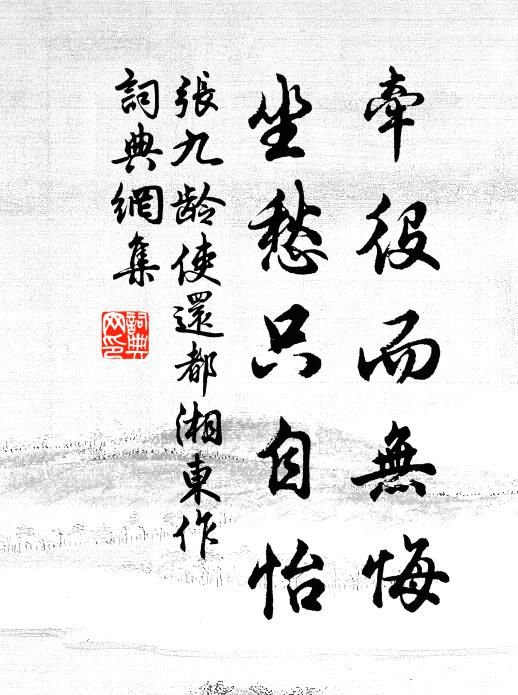 牽役而無悔
坐愁只自怡
張九齡使還都湘東作
詞典網集
詞典網印